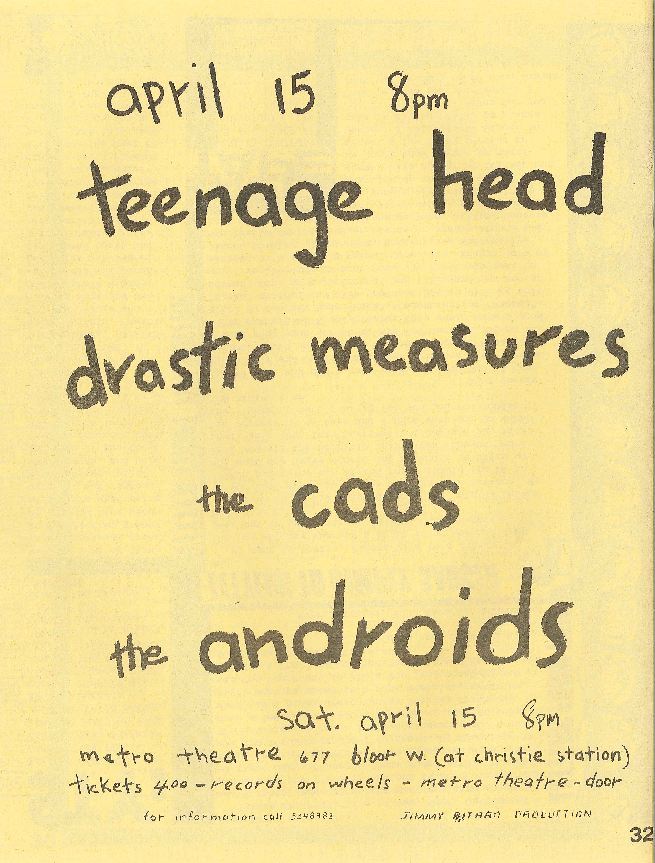 april 15 8pm
teenage head
drastic measures
the cads
the androids
sat. april 15 8pm
metro theatre 677 bloor w. (at christie station)
tickets 4.00 - records on wheels - metro theatre - door
for information call
JIMMY PRODUCTION
32